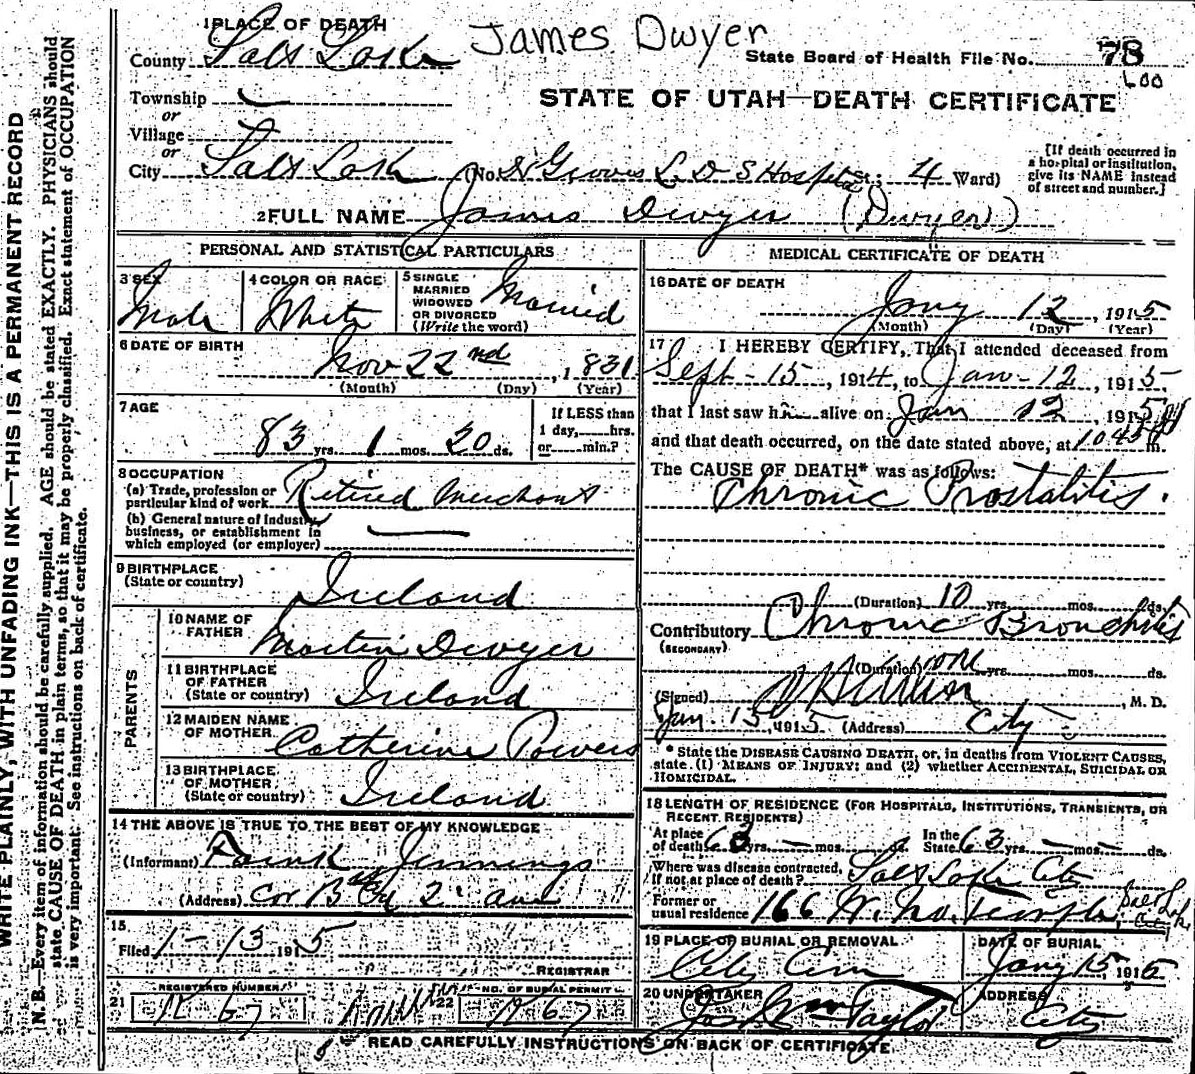 James Dwyer
1 PLACE OF DEATH
County Salt Lake
State Board of Health File No. 78
STATE OF UTAH—DEATH CERTIFICATE
Township
or
Village
or
City Salt Lake (No. L. D. S Hospital St.; 4 Ward)
[If death occurred in a hospital or institution, give its NAME instead of street and number.]
2 FULL NAME James Dwyer (Dwyer)
PERSONAL AND STATISTICAL PARTICULARS
3 SEX Male
4 COLOR OR RACE White
5 SINGLE MARRIED WIDOWED OR DIVORCED (Write the word) Married
6 DATE OF BIRTH Nov 22nd, 1831
(Month) (Day) (Year)
7 AGE 83 yrs. 1 mos. 20 ds.
If LESS than 1 day, hrs. or min.?
8 OCCUPATION
(a) Trade, profession or particular kind of work Retired Merchant
(b) General nature of industry, business, or establishment in which employed (or employer)
9 BIRTHPLACE (State or country) Ireland
PARENTS
10 NAME OF FATHER Martin Dwyer
11 BIRTHPLACE OF FATHER (State or country) Ireland
12 MAIDEN NAME OF MOTHER Catherine Powers
13 BIRTHPLACE OF MOTHER (State or country) Ireland
14 THE ABOVE IS TRUE TO THE BEST OF MY KNOWLEDGE
(Informant) Frank Jennings
(Address) Cor B 2 ave
15
Filed 1-13 1915
REGISTRAR
21 REGISTERED NUMBER K 67
22 NO. OF BURIAL PERMIT K 67
MEDICAL CERTIFICATE OF DEATH
16 DATE OF DEATH Jany 12, 1915
(Month) (Day) (Year)
17 I HEREBY CERTIFY, That I attended deceased from
Sept-15, 1914, to Jan-12, 1915
that I last saw him alive on Jan 12, 1915
and that death occurred, on the date stated above, at 1045 P m.
The CAUSE OF DEATH* was as follows:
Chronic Prostatitis.
(Duration) 10 yrs. mos. ds.
Contributory Chronic Bronchitis
(SECONDARY)
(Duration) yrs. mos. ds.
(Signed) , M. D.
Jan 13, 1915 (Address) City
* State the DISEASE CAUSING DEATH, or, in deaths from VIOLENT CAUSES, state (1) MEANS OF INJURY; and (2) whether ACCIDENTAL, SUICIDAL OR HOMICIDAL.
18 LENGTH OF RESIDENCE (FOR HOSPITALS, INSTITUTIONS, TRANSIENTS, OR RECENT RESIDENTS)
At place of death 63 yrs. — mos. ds. In the State 63 yrs. — mos. — ds.
Where was disease contracted, if not at place of death? Salt Lake City
Former or usual residence 166 W. No. Temple, Salt Lake City
19 PLACE OF BURIAL OR REMOVAL City Cem
DATE OF BURIAL Jany 15 1915
20 UNDERTAKER Jos Wm Taylor
ADDRESS City
READ CAREFULLY INSTRUCTIONS ON BACK OF CERTIFICATE
WRITE PLAINLY, WITH UNFADING INK—THIS IS A PERMANENT RECORD
N. B.—Every item of information should be carefully supplied. AGE should be stated EXACTLY. PHYSICIANS should
state CAUSE OF DEATH in plain terms, so that it may be properly classified. Exact statement of OCCUPATION
is very important. See instructions on back of certificate.